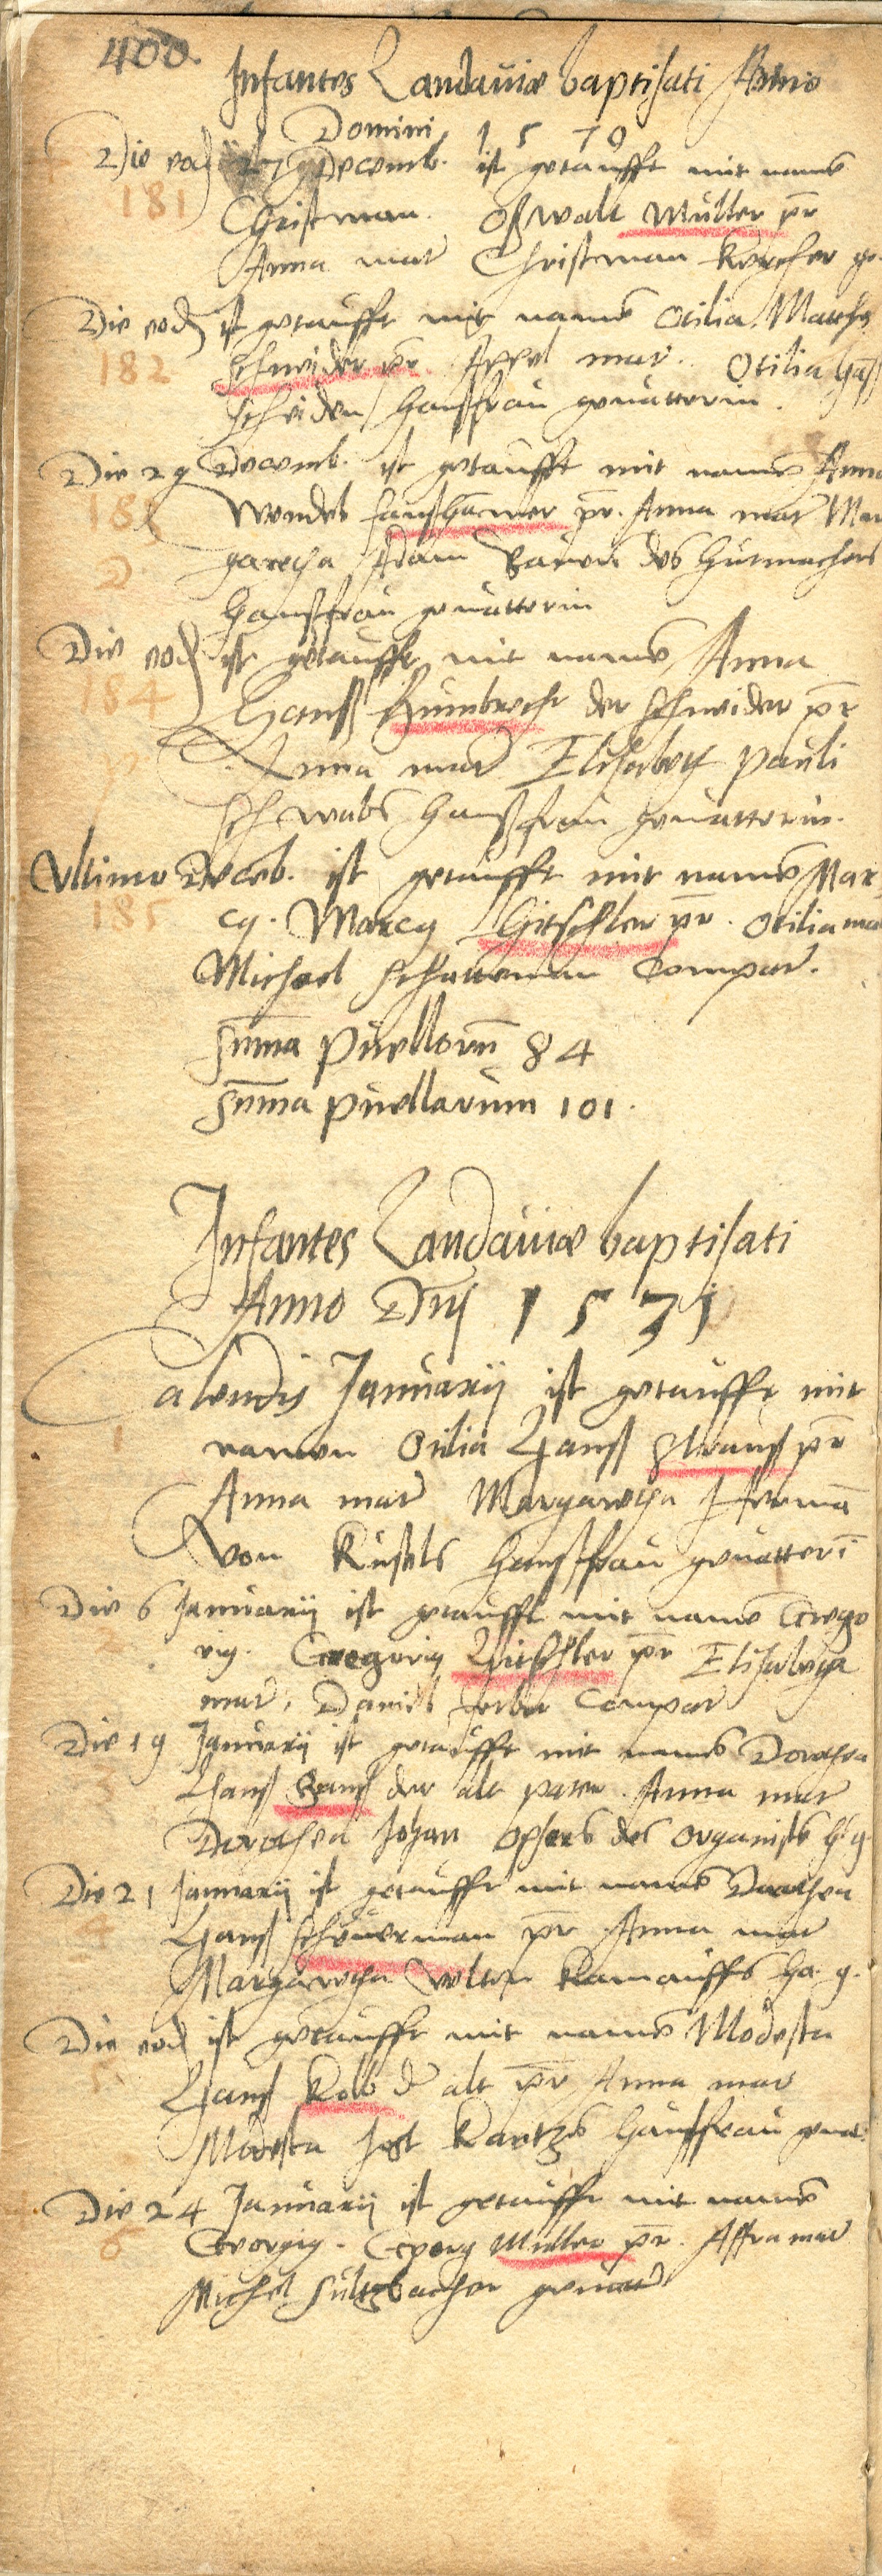 400.
Infantes Landaviæ baptisati Anno
Domini 1 5 7 0
Die eod 27 Decemb. ist getaufft mit namē
181
Christman. Oswalt Müller pr
Anna mat Christman Kercher ge.
Die eod ist getaufft mit namē Otilia. Matthes
182
schneider pr Appel mat. Otilia
scheiden haußfrau gevatterin.
Die 29 Decemb. ist getaufft mit namē Anna
183
Wendel pr. Anna mat Mar
garetha Adam des hutmachers
haußfrau gevatterin
Die eod ist getaufft mit namē Anna
184
Hanß Humbrecht der schneider pr
Anna mat Elisabeth Pauli
schwabs haußfrau gevatterin.
Ultimo Deceb. ist getaufft mit namē Mar
185
cy. Marcy Hirschler pr. Otilia mat
Michael Schatteman Compat.
Sūma Puellorū 84
Sūma puellarum 101.
Infantes Landaviæ baptisati
Anno Dnj 1 5 7 j
Calendis Januarij ist getaufft mit
1
namen Otilia Hanß Strauß pr
Anna mat Margaretha Hermā
von Kusels haußfrau gevatterī
Die 6 Januarij ist getaufft mit namē Grego
2
rig. Gregorig Hirschler pr Elisabetha
mat, Daniel ferber Compat
Die 19 Januarij ist getaufft mit namē Dorothea
3
Hanß Ganß der alt pater. Anna mat
Dorothea Johan Opsers des organists h. g.
Die 21 Januarij ist getaufft mit namē Dorothea
4
Hanß scheuerman pr Anna mat
Margaretha Velten Kamauffs ha. g.
Die eod ist getaufft mit namē Modesta
5
Hanß Kolb d alt pr Anna mat
Modesta Jost Kantzs haußfrau gevat.
Die 24 Januarij ist getaufft mit namē
6
Georgig. Georg Müller pr. Affra mat
Michel Sultzbacher gevatt